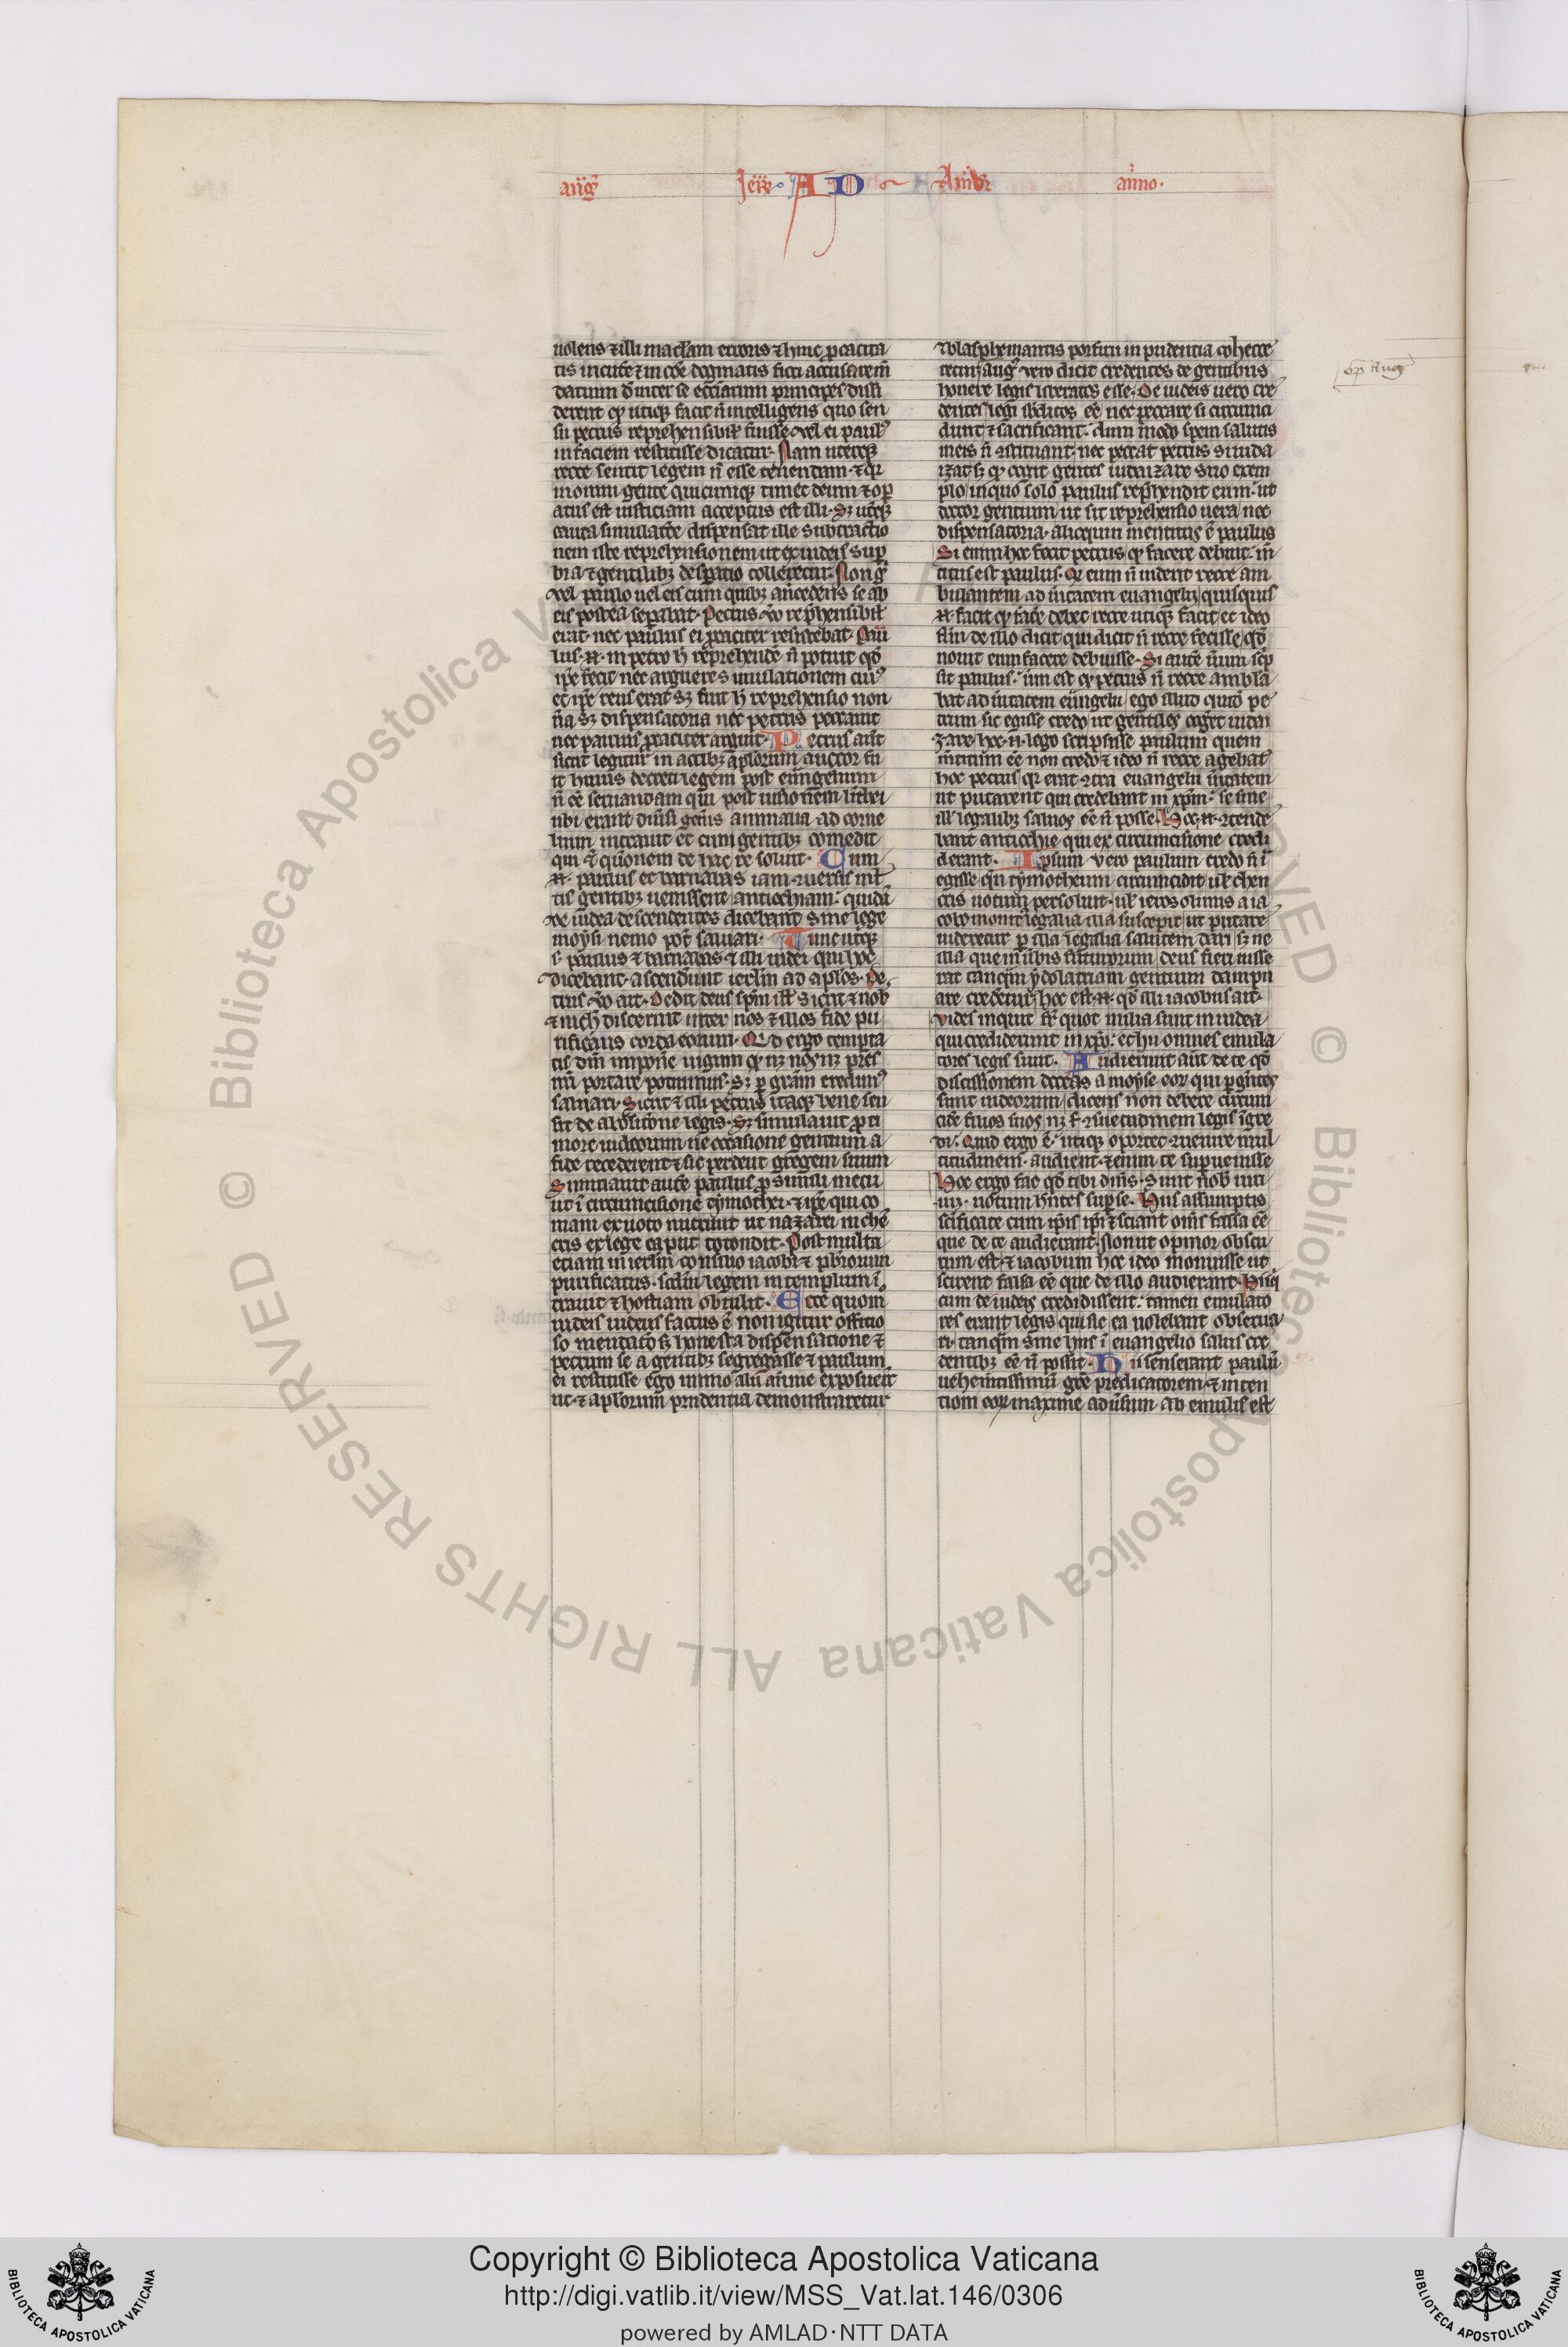 aug
Iero A D
Ambr
anno.
uolens & illi maclam erroris & hinc procacita
tis incute & in coe dogmatis ficti accusatem
datum inter se eccliarum principes dissi
derent qd utiq; facit n intelligens quo sen
su petrus reprehensibil fuisse uel ei paul
in faciem restitisse dicatur. Nam uterq;
recte sentit legem n esse tenendam. & qr
in omni gente quicumq; timet deum & op
atus est iusticiam acceptus est illi. Sz uterq;
cauta simulatoe dispensat ille subtractio
nem iste reprehensionem ut ex iudeis sup
bia & gentilibz despatio tolleretur. Non g
uel paulo uel eis cum quibz ancedens se ab
eis postea separabat. Petrus uo reprehensibil
erat. nec paulus ei procaciter resistebat. Pau
lus. n. in petro h reprehende n potuit qd
ipse fecit nec arguere simulationem cui
et ipse reus erat sz fuit h reprehensio non
ua sz dispensatoria nec petrus peccauit
nec paulus procaciter arguit. Petrus aut
sicut legitur in actibz aplorum auctor fu
it huius decreti legem post euangelium
n ee seruandam qui post uisionem linthei
ubi erant diuersi generis animalia ad corne
lium intrauit et cum gentibz comedit
qui & questionem de hac re soluit. Cum
n. paulus et barnabas iam conuersis mul
tis gentibz uenissent antiochiam. quidam
de iudea descendentes dicebant sine lege
moysi nemo pot saluari. Tunc utiq;
s. paulus & barnabas & illi uidei qui hoc
dicebant ascendunt ierlm ad aplos. Pe
trus uo ait. Dedit deus spm ill sicut & nob
& nich discernit inter nos & illos fide pu
rificans corda eorum. Qd ergo tempta
tis dm imponere iugum qd nz nos nz pres
nri portare potuimus. Sz p gram credimus
saluari. Sicut & illi petrus itaq; bene sen
sit de abolitione legis. Sz simulauit p ti
more iudeorum ne occasione gentium a
fide recederent & sic perderet gregem suum
Simulauit aute paulus p simili metu
ut i circumcisione tymothei. & ipse qui co
mam ex uoto nutriuit ut nazarei in chen
cris ex lege caput totondit. Post multa
etiam in ierlm consilio iacobi & pbrorum
purificatus. scdm legem in templum i
trauit & hostiam obtulit. Ecce quom
iudeis iudeus factus e non igitur officio
so mendatio sz honesta dispensatione &
petrum se a gentibz segregasse & paulum
ei restitisse ego immo alii ante me exposuert
ut & aplorum prudentia demonstraretur
& blasphemantis porfirii in prudentia cohercere
tetur. Aug uero dicit credentes de gentibus
honere legis liberatos esse. De iudeis uero cre
dentes legi subditos ee nec peccare si circumci
dunt & sacrificant. dum modo spem salutis
in eis n constituant. nec peccat petrus si iuda
izat sz qd cogit gentes iudaizare suo exem
plo. in quo solo paulus reprehendit eum. ut
doctor gentium ut sit reprehensio uera nec
dispensatoria. alioquin mentitus e paulus
Si enim hoc fecit petrus qd facere debuit. men
titus est paulus. qr eum n uiderit recte am
bulantem ad ueritatem euangelii quisquis
n. facit qd face debet recte utiq; facit et ideo
flm de illo dicit qui dicit n recte fecisse qd
nouit eum facere debuisse. Si aute uerum scrip
sit paulus. uerum est qd petrus n recte ambula
bat ad ueritatem euangelii. ego illud quid pe
trum sic egisse credo ut gentiles coget iudai
zare. hec. n. lego scripsisse paulum quem
mentitum ee non credo & ideo n recte agebat
hoc petrus qr erat contra euangelii ueritatem
ut putarent qui credebant in xpm. se sine
ill legalibz saluos ee n posse. Hoc. n. contende
bant antiochie qui ex circumcisione credi
derant. Ipsum uero paulum credo n i
egisse qn tymotheum circumcidit ul chen
cris uotum persoluit. ul ierosolimis a ia
cobo monitus legalia illa suscepit ut putare
uideretur p illa legalia salutem dari sz ne
illa que in umbris futurorum deus fieri iusse
rat tanqm ydolatriam gentium dampn
are crederetur. hoc est. n. qd illi iacobus ait.
Vides inquit fr quot milia sunt in iudea
qui crediderunt in xpo. et hii omnes emula
tores legis sunt. Audierunt aut de te qd
discissionem doceas a moyse eorum qui p gentes
sunt iudeorum dicens non debere circum
cide filios suos nz secundum consuetudinem legis ingre
di. Quid ergo e. utiq; oportet conuenire mul
titudinem. audient. & enim te superuenisse
Hoc ergo fac qd tibi dicimus. Sunt nob uiri
.iiii. uotum habentes super se. Hiis assumptis
scifficate cum ipsis & sciant oms falsa ee
que de te audierant. Non ut opinor obscu
rum est. & iacobum hoc ideo monuisse ut
scirent falsa ee que de illo audierant. Hii qui
cum de iudeis credidissent. tamen emulato
res erant legis qui sic ea uolebant obserua
ri. tanqm sine hiis i euangelio salus cre
dentibz ee n possit. Hii senserant paulum
uehementissimum gre predicatorem. & inten
tioni eorum maxime aduersum. Ab emulis est
sp Aug
Copyright © Biblioteca Apostolica Vaticana
http://digi.vatlib.it/view/MSS_Vat.lat.146/0306
powered by AMLAD·NTT DATA
BIBLIOTECA APOSTOLICA VATICANA
BIBLIOTECA APOSTOLICA VATICANA
© Biblioteca Apostolica Vaticana ALL RIGHTS RESERVED